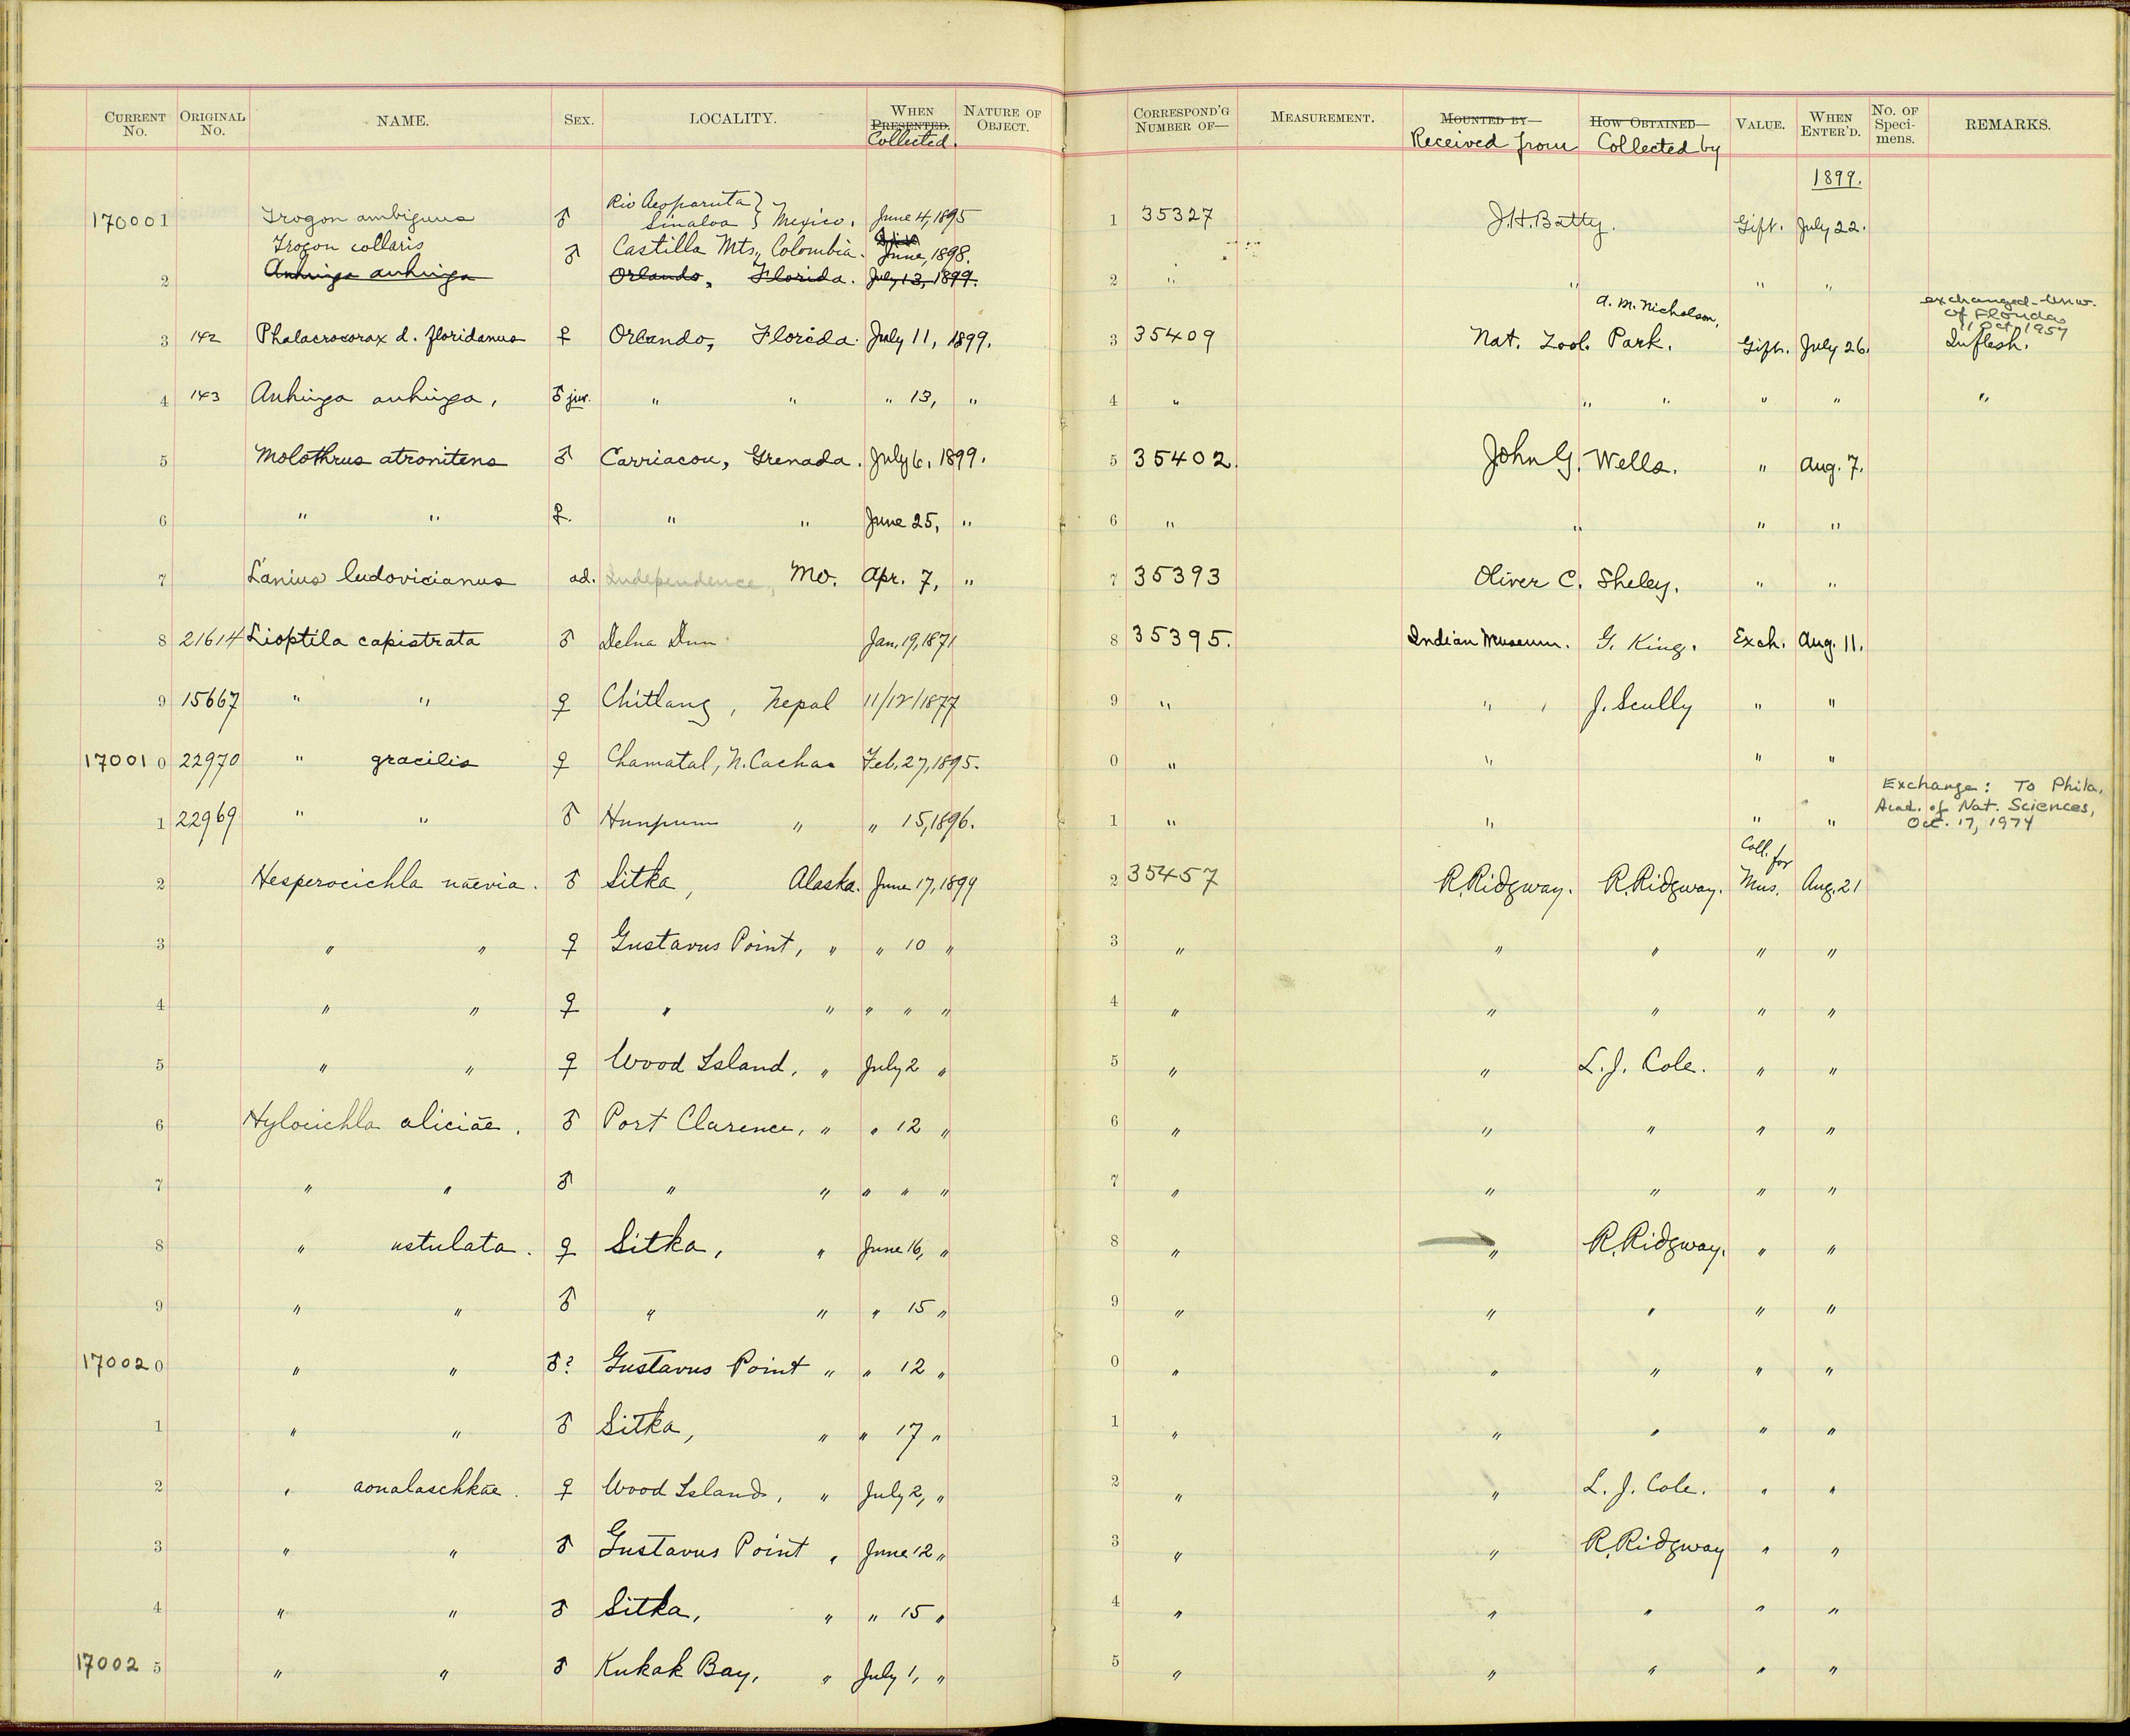 CURRENT No. ORIGINAL No. NAME. SEX. LOCALITY. WHEN PRESENTED. Collected. NATURE OF OBJECT. CORRESPOND'G NUMBER OF— MEASUREMENT. MOUNTED BY— Received from HOW OBTAINED— Collected by VALUE. WHEN ENTER'D. No. OF Speci- mens. REMARKS.
1899.
170001 Trogon ambiguus ♂ Rio Sinaloa } Mexico. June 4, 1895 1 35327 J.H. Batty. Gift. July 22.
Trogon collaris ♂ Castilla Mts., Colombia. June, 1898.
2 Anhinga anhinga Orlando, Florida. July 13, 1899. 2 " " " "
A. M. Nicholson, exchanged - Univ. of Florida 11 Oct 1957
3 142 Phalacrocorax d. floridanus ♀ Orlando, Florida. July 11, 1899. 3 35409 Nat. Zool. Park. Gift. July 26. In flesh.
4 143 Anhinga anhinga, ♂ juv. " " " 13, " 4 " " " " " "
5 Molothrus atronitens ♂ Carriacou, Grenada. July 6, 1899. 5 35402. John G. Wells. " Aug. 7.
6 " " ♀. " " June 25, " 6 " " " "
7 Lanius ludovicianus ad. Independence, Mo. Apr. 7, " 7 35393 Oliver C. Sheley. " "
8 21614 Lioptila capistrata ♂ Dehra Dun Jan. 19, 1871 8 35395. Indian Museum. G. King. Exch. Aug. 11.
9 15667 " " ♀ Chitlang, Nepal 11/12/1877 9 " " J. Scully " "
17001 0 22970 " gracilis ♀ Chamatal, N. Cachar Feb. 27, 1895. 0 " " " "
Exchange: To Phila. Acad. of Nat. Sciences, Oct. 17, 1974
1 22969 " " ♂ Hunpum " " 15, 1896. 1 " " " "
2 Hesperocichla naevia. ♂ Sitka, Alaska. June 17, 1899 2 35457 R. Ridgway. R. Ridgway. Coll. for Mus. Aug. 21
3 " " ♀ Gustavus Point, " " 10 " 3 " " " " "
4 " " ♀ " " " " " 4 " " " " "
5 " " ♀ Wood Island, " July 2 " 5 " " L. J. Cole. " "
6 Hylocichla aliciae. ♂ Port Clarence, " " 12 " 6 " " " " "
7 " " ♂ " " " " " 7 " " " " "
8 " ustulata. ♀ Sitka, " June 16, " 8 " " R. Ridgway. " "
9 " " ♂ " " " 15 " 9 " " " " "
17002 0 " " ♂? Gustavus Point " " 12 " 0 " " " " "
1 " " ♂ Sitka, " " 17 " 1 " " " " "
2 " aonalaschkae. ♀ Wood Island, " July 2, " 2 " " L. J. Cole. " "
3 " " ♂ Gustavus Point " June 12 " 3 " " R. Ridgway " "
4 " " ♂ Sitka, " " 15 " 4 " " " " "
17002 5 " " ♂ Kukak Bay, " July 1, " 5 " " " " "